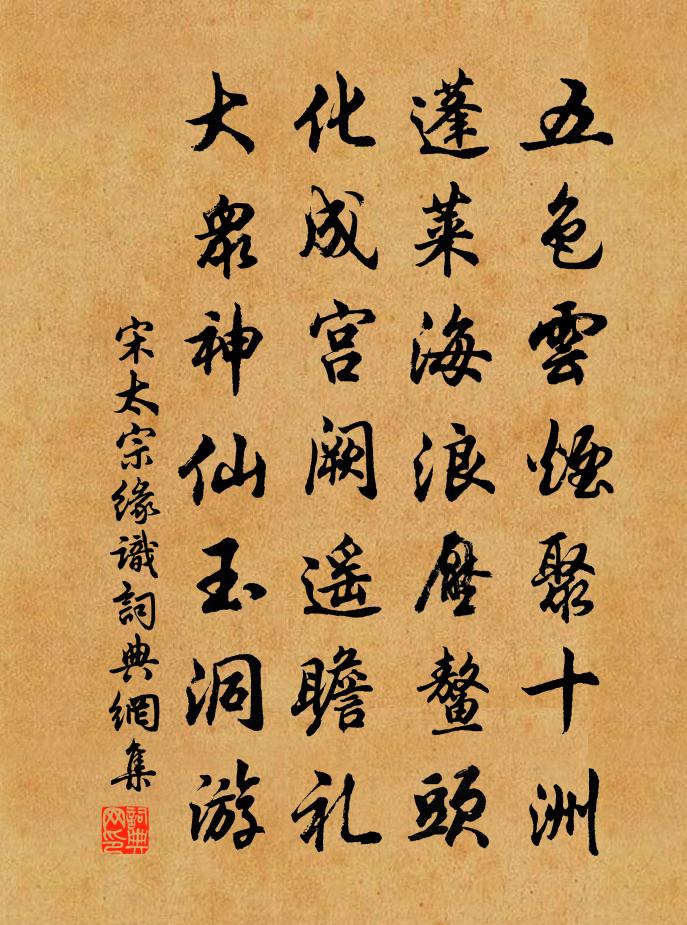 五色雲煙聚十洲
蓬萊海浪壓鼇頭
化成宫阙遥瞻礼
大衆神仙玉洞游
宋太宗緣識詞典網集
詞典网印